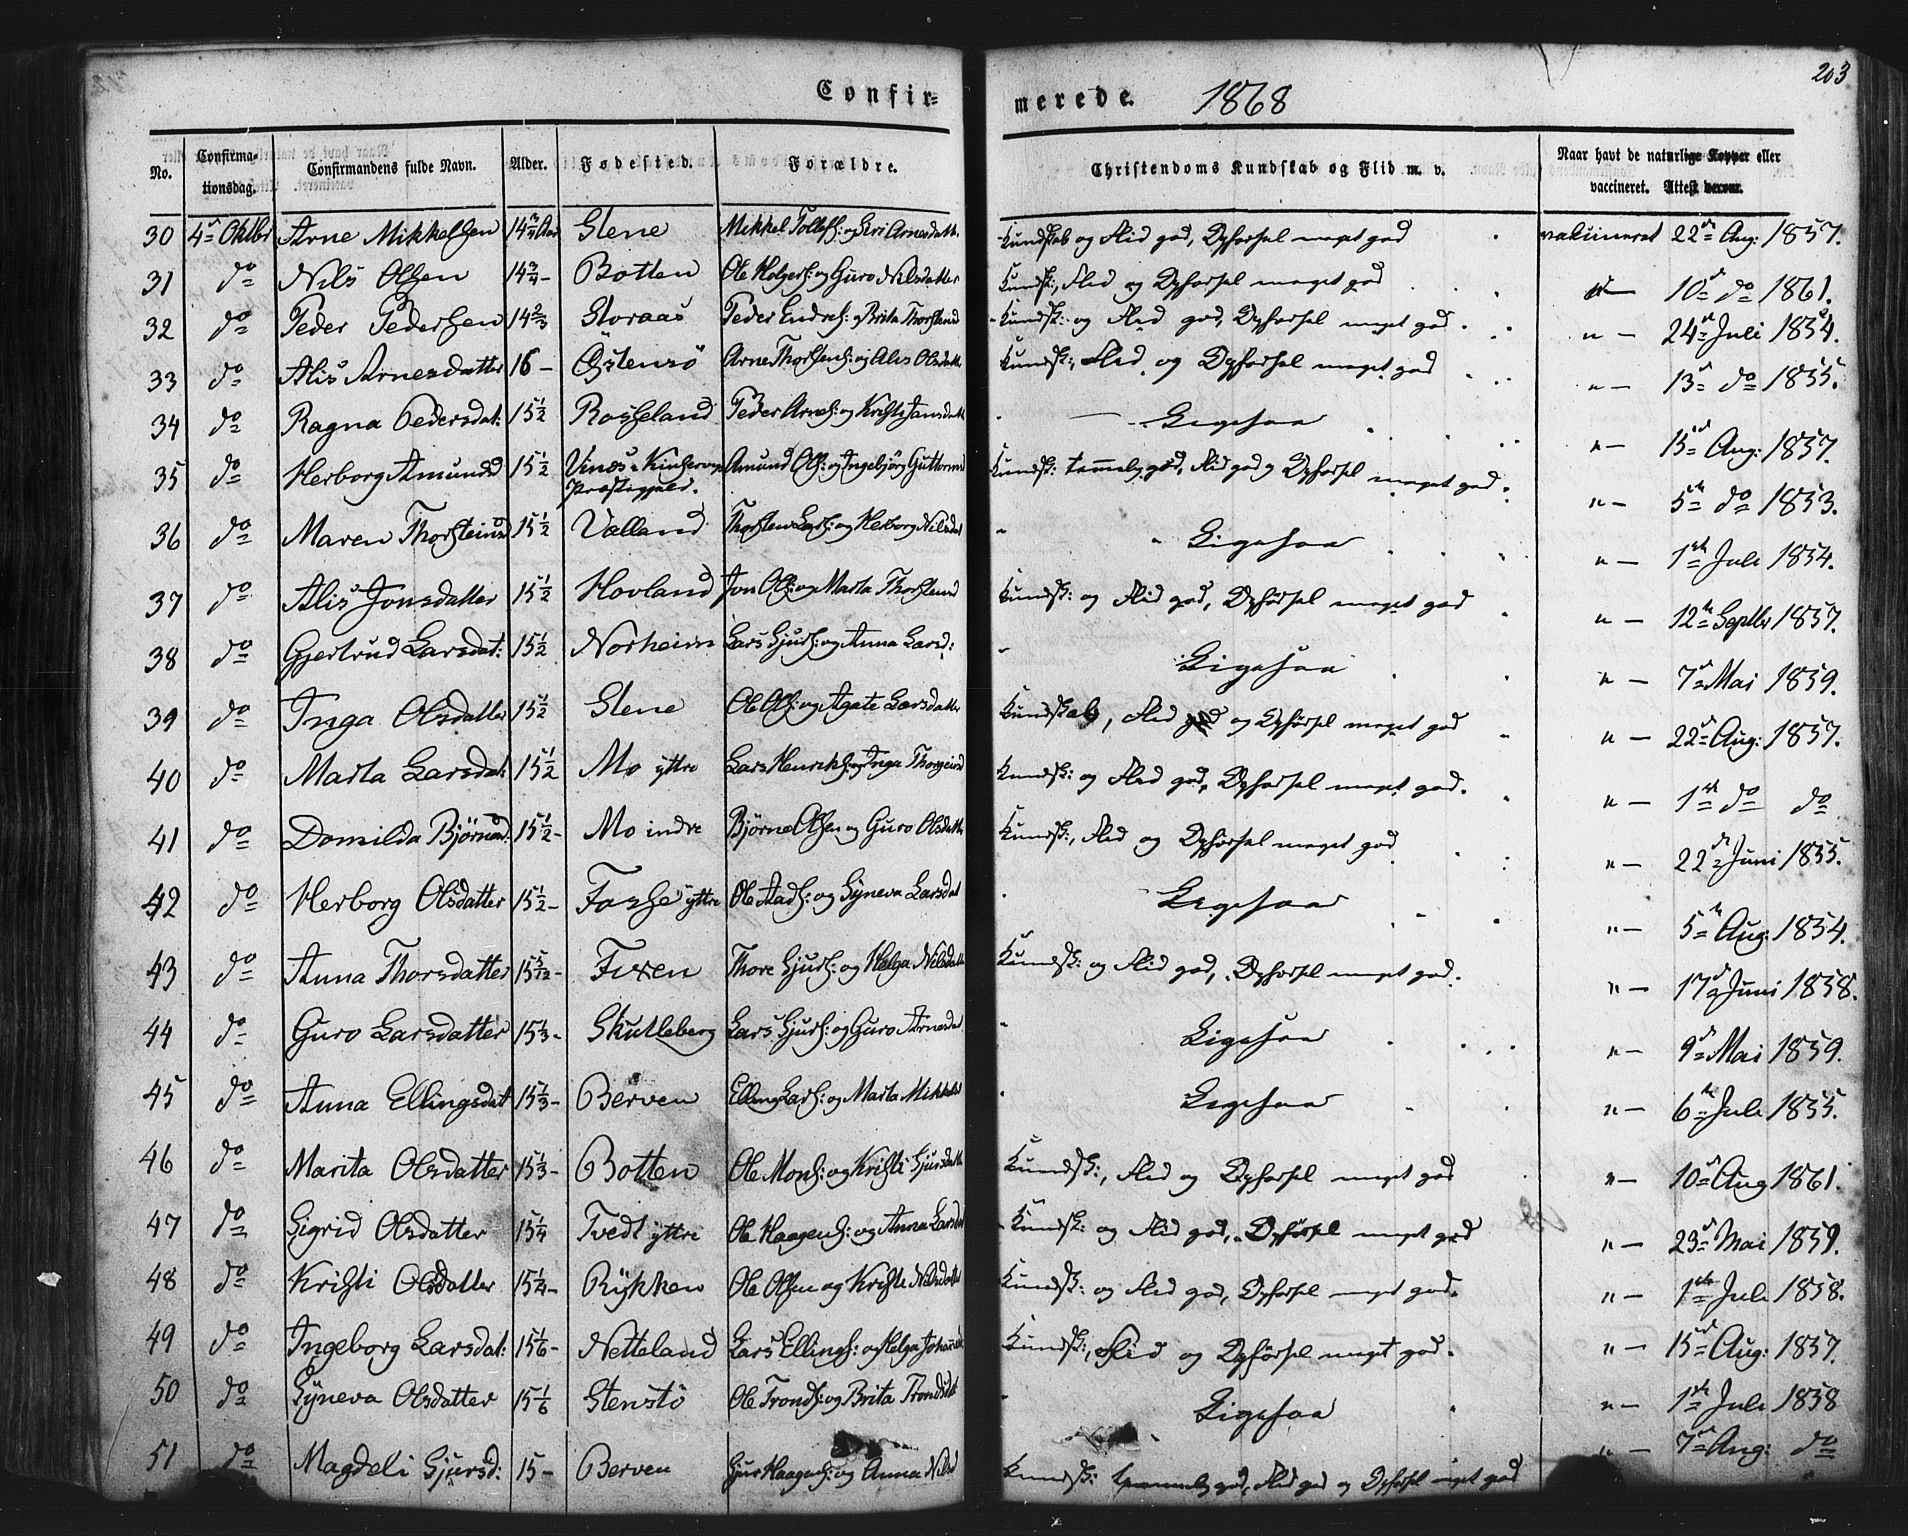 203
Confir- merede. 1868
No. Confirma-tionsdag. Confirmandens fulde Navn. Alder. Fødested. Forældre. Christendoms Kundskab og Flid m. v. Naar havt de naturlige Kopper eller vaccineret. Attest derom.
30 4de Oktbr Arne Mikkelsen 14 3/4 Aar Stene Mikkel Tollefs: og Siri Arnesdatt. Kundskab og Flid god, Opførsel meget god vakcineret 22de Aug: 1857.
31 do Nils Olsen 14 3/4 - Botten Ole Holgers: og Guro Nilsdatter Kundsk:, Flid og Opførsel meget god " — 10de do 1861.
32 do Peder Pedersen 14 2/3 Storaas Peder Endres: og Brita Thorsteinsd Kundsk: og Flid god, Opførsel meget god. " — 24de Juli 1854.
33 do Alis Arnesdatter 16 - Østensø Arne Thorstens: og Alis Olsdatt Kundsk:, Flid og Opførsel meget god " — 13de do 1855.
34 do Ragna Pedersdat: 15 1/2 Rosseland Peder Arnes: og Kristi Jansdatt — Ligesaa " — 15de Aug: 1857.
35 do Herborg Amundsd 15 1/2 Vines - Kinservigs Præstegjeld. Amund Ols: og Ingebjørg Guttormsd Kundsk: temmelig god, Flid god og Opførsel meget god. " — 5te do 1853.
36 do Maren Thorsteinsd 15 1/2 Valland Thorsten Lars: og Herborg Nilsdat " Ligesaa " — 1ste Juli 1854.
37 do Alis Jonsdatter 15 1/2 Hovland Jon Ols: og Marta Thorsteinsd Kundsk: og Flid god, Opførsel meget god " — 12te Septbr 1857.
38 do Gjertrud Larsdat: 15 1/2 Norheim Lars Sjurs: og Anna Larsd: " Ligesaa " — 7de Mai 1859.
39 do Inga Olsdatter 15 1/2 Stene Ole Ols: og Agate Larsdatter Kundskab, Flid god og Opførsel meget god " — 22de Aug: 1857.
40 do Marta Larsdat: 15 1/2 Mo yttre Lars Henriks: og Inga Thorgeirsd Kundsk: og Flid god, Opførsel meget god. " — 1ste do do
41 do Domilda Bjørnsd: 15 1/2 - Mo indre Bjørne Olsen og Guro Olsdatt. Kundsk:, Flid og Opførsel meget god " — 22de Juni 1855.
42 do Herborg Olsdatter 15 1/2 - Fosse yttre Ole Aads: og Syneva Larsdat Ligesaa " — 5te Aug: 1854.
43 do Anna Thorsdatter 15 5/12 - Fixen Thore Sjurs: og Helga Nilsdatt Kundsk: og Flid god, Opførsel meget god. " — 17de Juni 1858.
44 do Guro Larsdatter 15 1/3 - Skutleberg Lars Sjurs: og Guro Arnesdat " Ligesaa " — 9de Mai 1859.
45 do Anna Ellingsdat 15 1/3 - Berven Elling Lars: og Marta Mikkelsd " Ligesaa " — 6te Juli 1855.
46 do Marita Olsdatter 15 1/3 - Botten Ole Mons: og Kristi Sjursdatt Kundsk:, Flid og Opførsel meget god " — 10de Aug 1861.
47 do Sigrid Olsdatter 15 1/4 Tvedt yttre Ole Haagens: og Anna Larsdat Kundsk: og Flid god, Opførsel meget god " — 23de Mai 1859.
48 do Kristi Olsdatter 15 1/4 - Rykken Ole Olsen og Kristi Nilsdatter Kundsk: og Flid god, Opførsel meget god. " — 1ste Juli 1858.
49 do Ingeborg Larsdat: 15 1/6 - Netteland Lars Ellings: og Helga Johannesd Kundsk:, Flid og Opførsel meget god. " — 15de Aug: 1857.
50 do Syneva Olsdatter 15 1/6 Stenstø Ole Tronds: og Brita Trondsdat " Ligesaa " — 1ste Juli 1858
51 do Magdeli Sjursd: 15 - Berven Sjur Haagens: og Anna Nilsd Kundsk: temmelig god, Flid god og Opførsel meget god " — 7de Aug: do